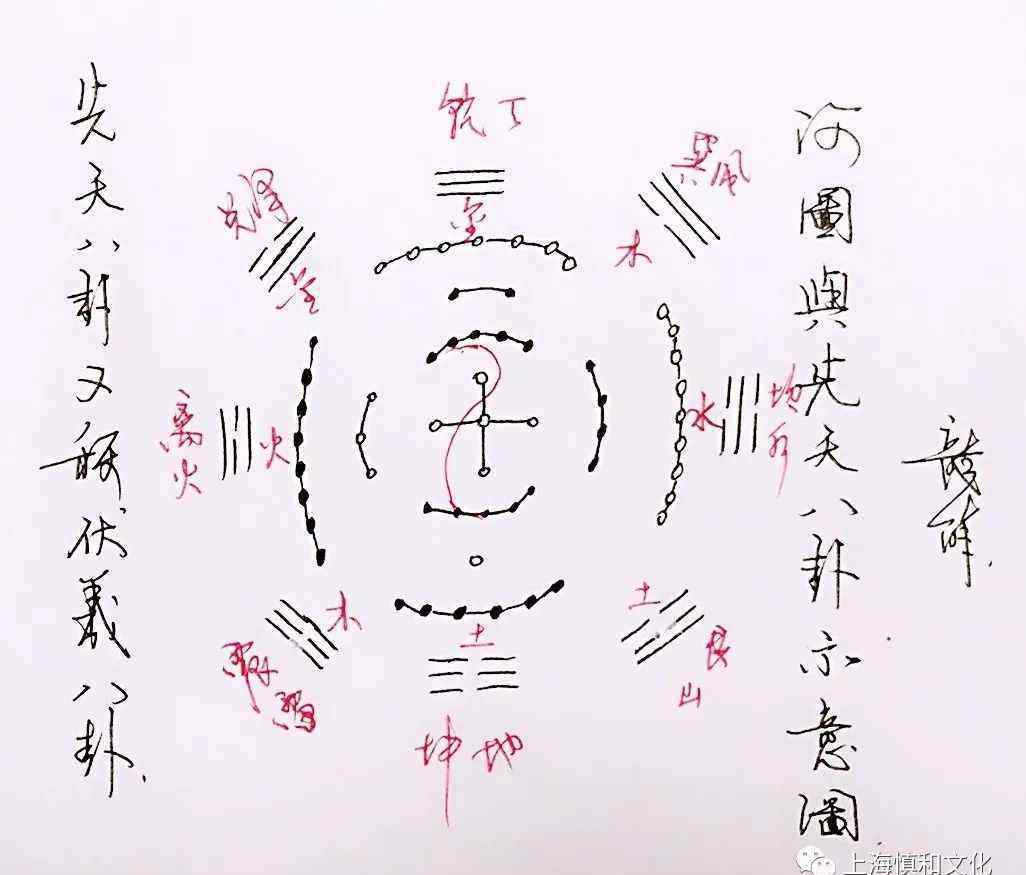 河圖與先天八卦示意圖
先天八卦又稱伏羲八卦.
金
兑泽
金
巽风
木
离火
火
水
坎水
木
震雷
土
坤地
土
艮山
上海慎和文化